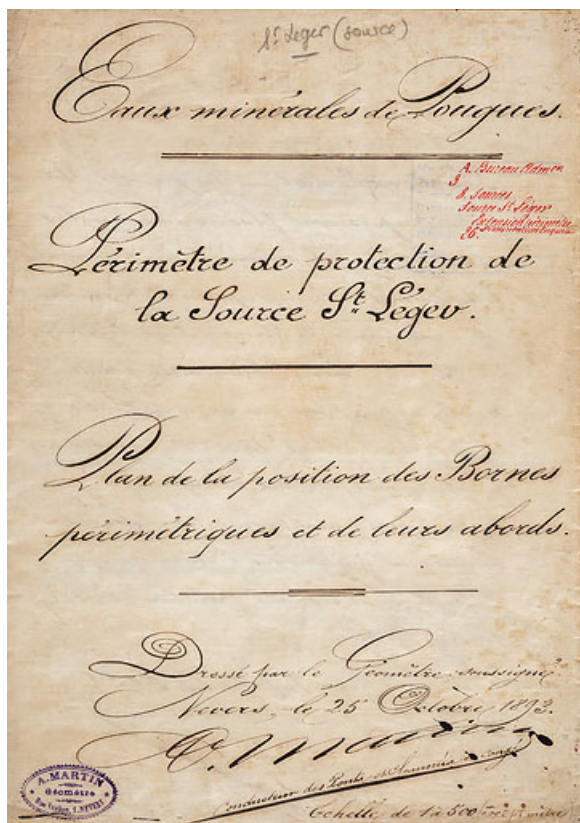 St Leger (source)
Eaux minérales de Pougues.
A. Bureau Admon
3
8. Sources
Source St Léger
Extension périmètre
26.
Périmètre de protection de
la Source St Léger.
Plan de la position des Bornes
périmétriques et de leurs abords.
Dressé par le Géomètre soussigné
Nevers, le 25 Octobre 1893.
A. Martin
Conducteur des Ponts et Chaussées en congé
A. MARTIN
Géomètre
NEVERS
Echelle de 1 à 500